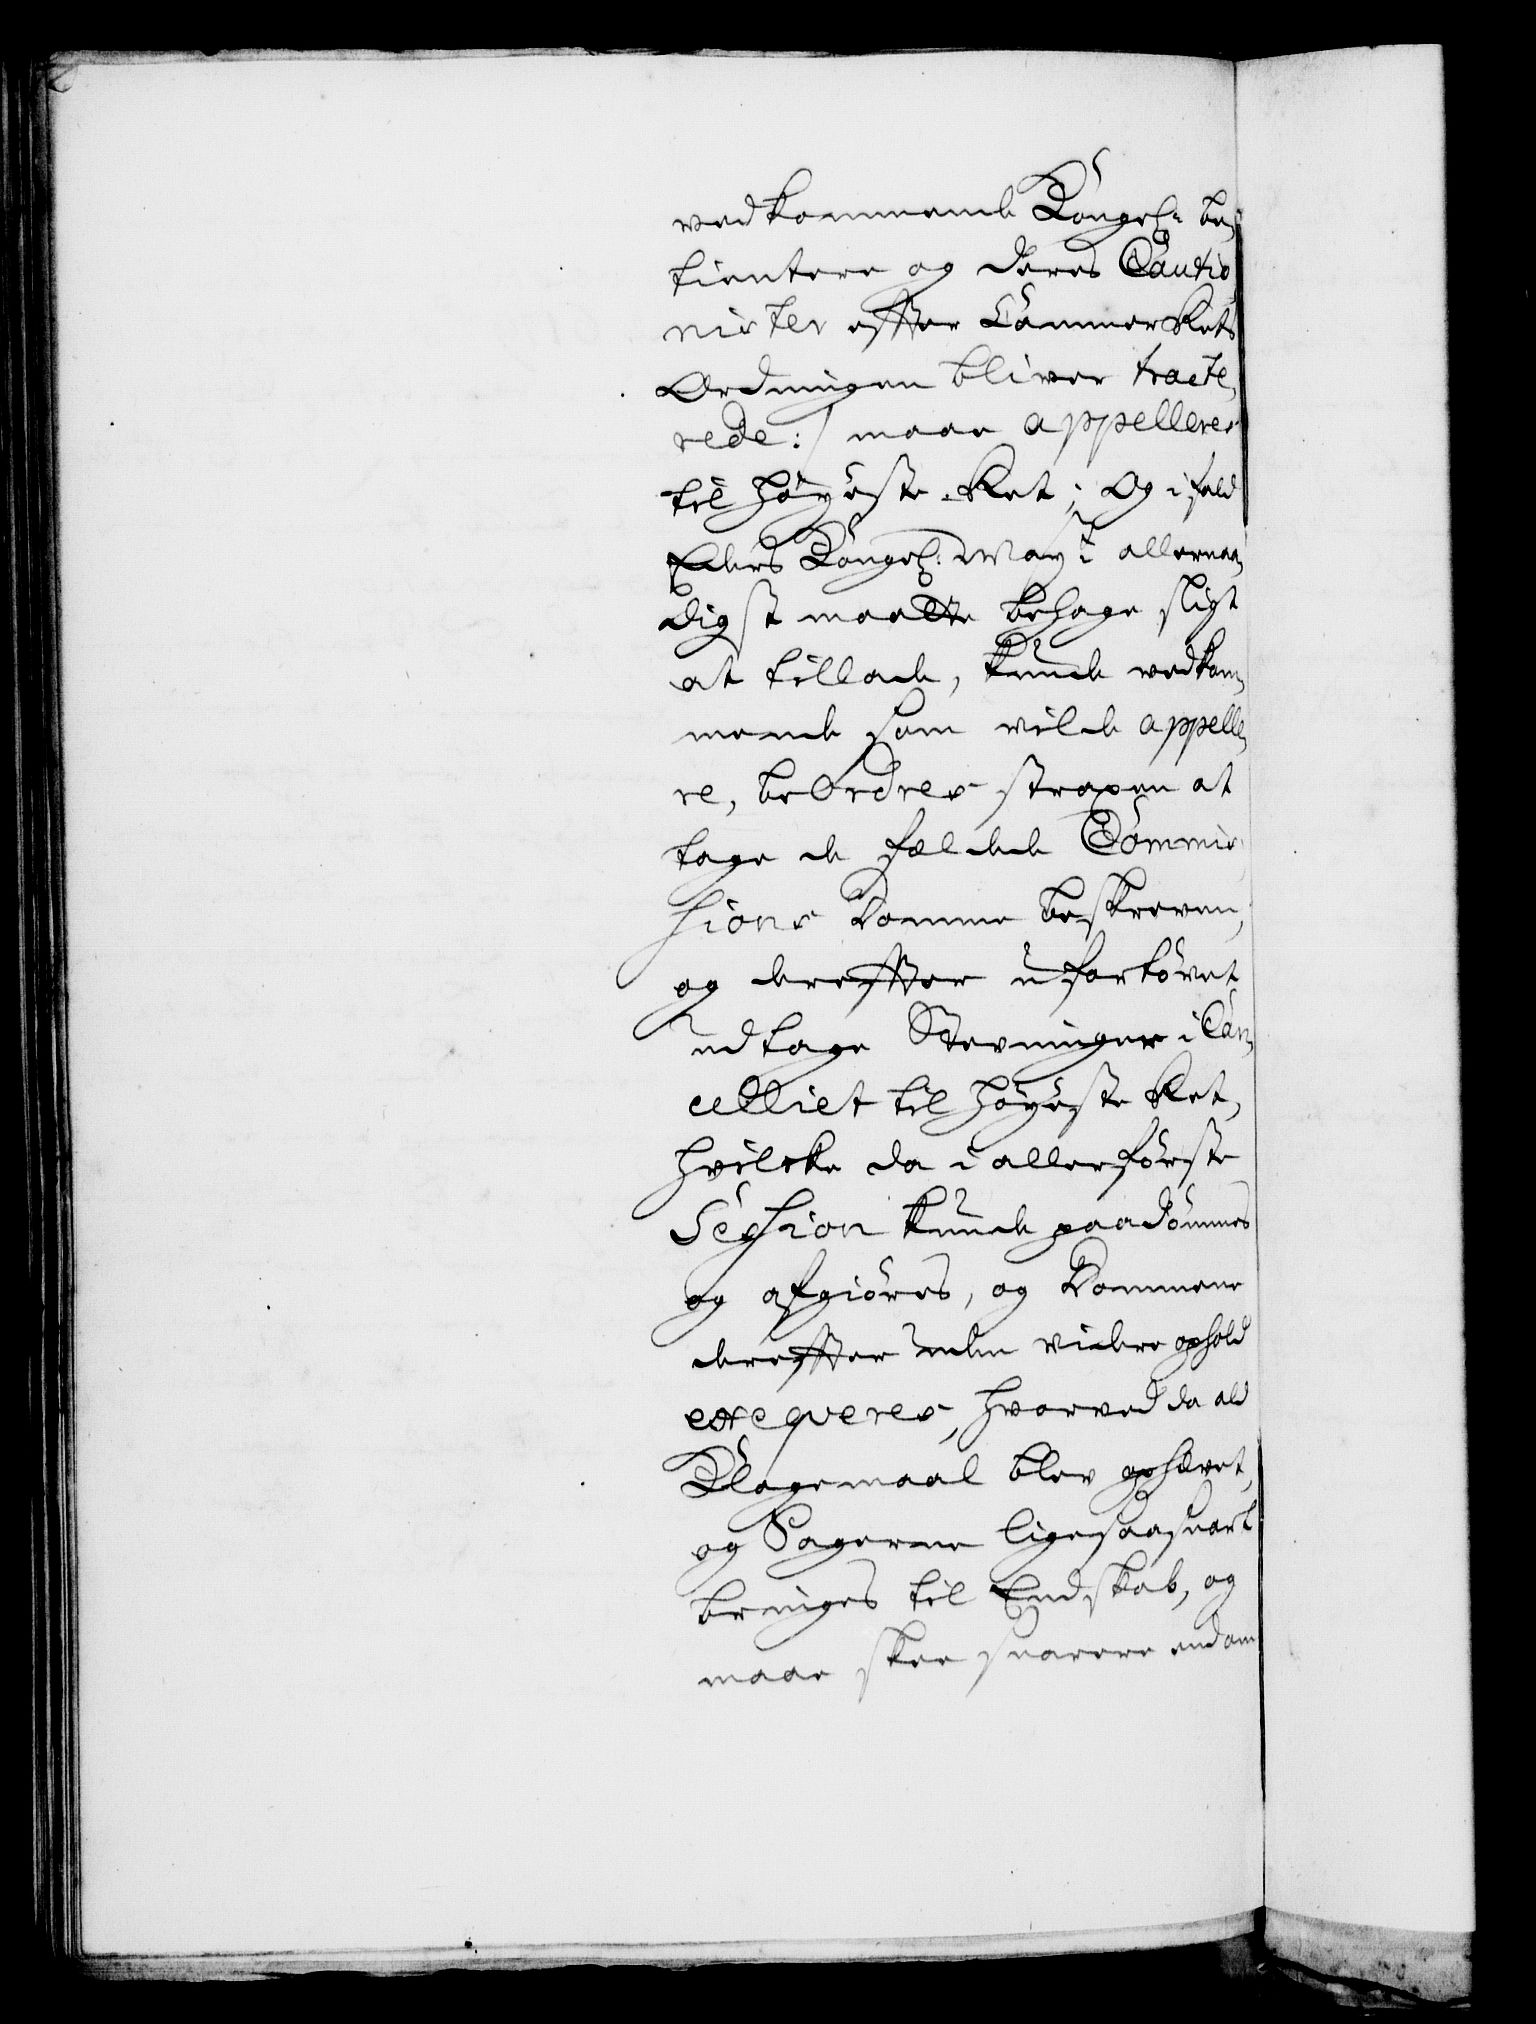 vedkommende Kongel: be-
tientere og deres Cautio
nister efter Cammer Rets
Ordningen bliver tracte-
rede:/ maae appelleres
til høyeste Ret; Og ifald
Eders Kongel: May:t allernaa-
digst maatte behage sligt
at tillade, kunde vedkom-
mende som vilde appelle-
re, beordres straxen at
tage de fældede Commis-
sions Domme beskreven,
og derefter ufortøvet
udtage Stevninger i Can-
celliet til høyeste Ret,
hvilcke da i allerførste
Session kunde paadømmes
og afgiøres, og Dommene
derefter uden videre ophold
exeqveres, hvorved da ald
Klagemaal blev ophævet,
og Sagerne ligesaasnart
bringes til Endskab, og
maae skee snarere end om